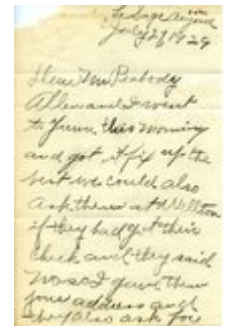 July 29 1929
Dear Mr Peabody
Allen and I went
to Yuma this morning
and got it fix up the
best we could also
ask them at Wellton
if they had got their
check and they said
no so I gave them
your address and
they also ask for